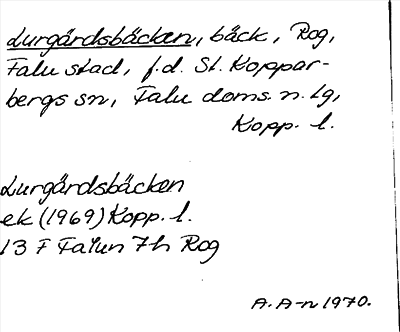 Lurgårdsbäcken, bäck, Rog,
Falu stad, f.d. St. Koppar-
bergs sn, Falu doms. n. lg,
Kopp. l.
Lurgårdsbäcken
ek (1969) Kopp. l.
13 F Falun 7h Rog
A. A-n 1970.